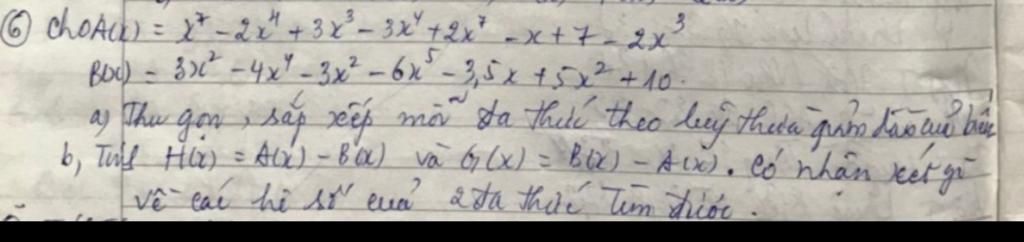 ⑥ Cho A(x) = x⁷ - 2x⁴ + 3x³ - 3x⁴ + 2x⁷ - x + 7 - 2x³
B(x) = 3x² - 4x⁴ - 3x² - 6x⁵ - 3,5x + 5x² + 10.
a) Thu gọn, sắp xếp mỗi đa thức theo luỹ thừa giảm dần của biến
b, Tính H(x) = A(x) - B(x) và G(x) = B(x) - A(x). Có nhận xét gì
về các hệ số của 2 đa thức tìm được.